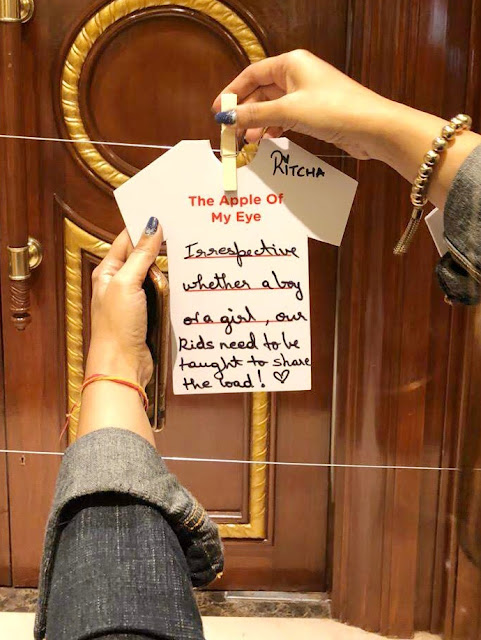 RITCHA
The Apple Of
My Eye
Irrespective
whether a boy
or a girl, our
Kids need to be
taught to share
the load! ♡